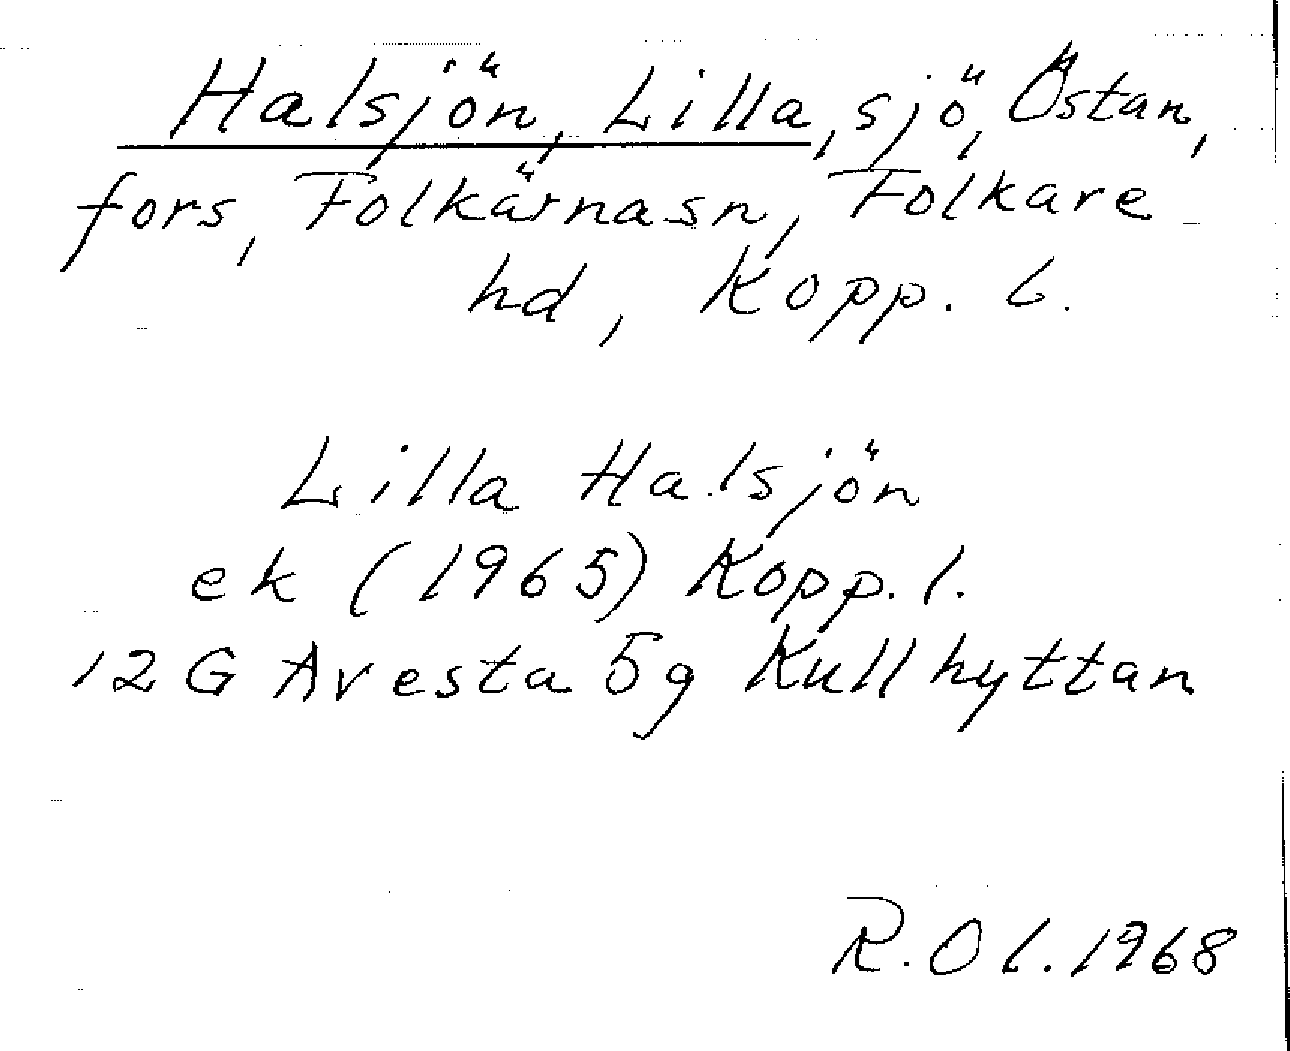 Halsjön, Lilla, sjö, Östan,
fors, Folkärnasn, Folkare
hd, Kopp. l.
Lilla Halsjön
ek (1965) Kopp. l.
12 G Avesta 5g Kullhyttan
R. Ol. 1968